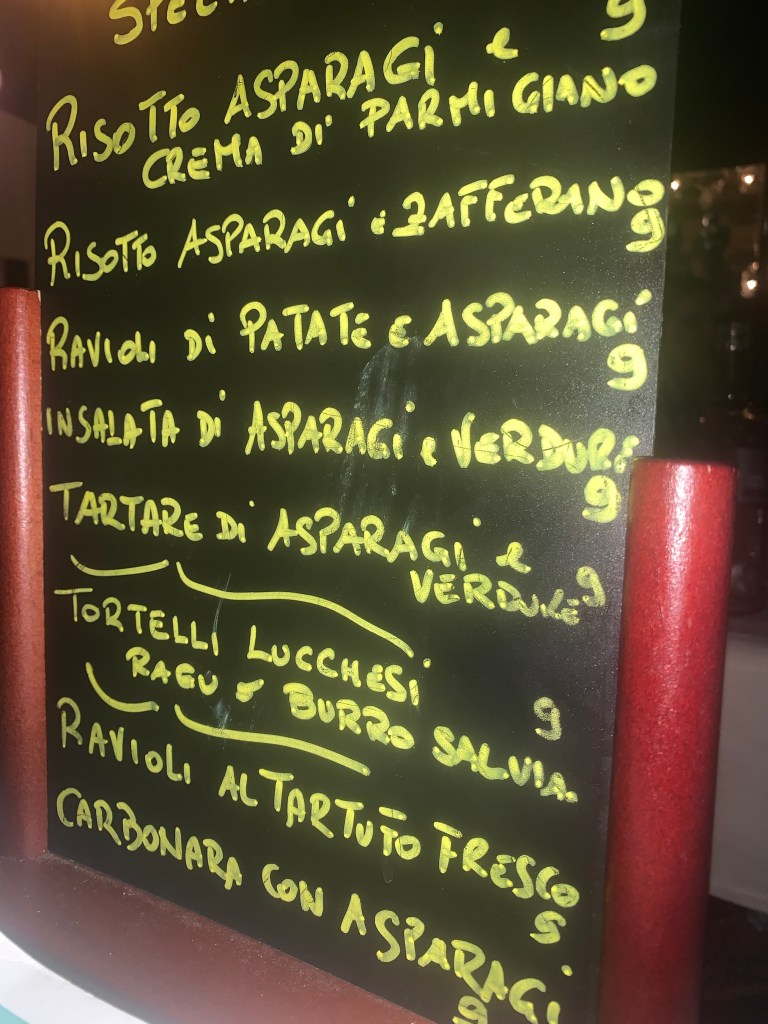 9
RISOTTO ASPARAGI e
CREMA DI PARMIGIANO
RISOTTO ASPARAGI e ZAFFERANO
9
RAVIOLI DI PATATE e ASPARAGI
9
INSALATA DI ASPARAGI e VERDURE
9
TARTARE DI ASPARAGI e
VERDURE 9
TORTELLI LUCCHESI
RAGU BURRO SALVIA 9
RAVIOLI AL TARTUFO FRESCO
CARBONARA CON ASPARAGI
9